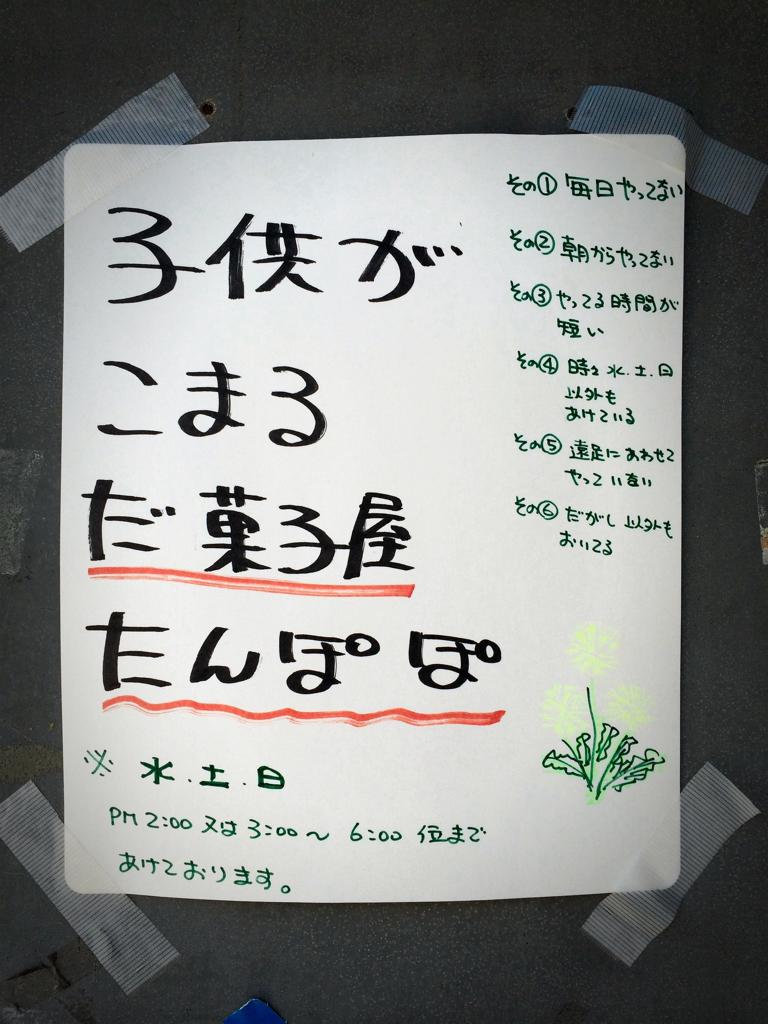 子供が
こまる
だ菓子屋
たんぽぽ
※ 水.土.日
PM 2:00 又は 3:00〜 6:00 位まで
あけております。
その① 毎日やってない
その② 朝からやってない
その③ やってる時間が
短い
その④ 時々 水.土.日
以外も
あけている
その⑤ 遠足にあわせて
やっていない
その⑥ だがし以外も
おいてる